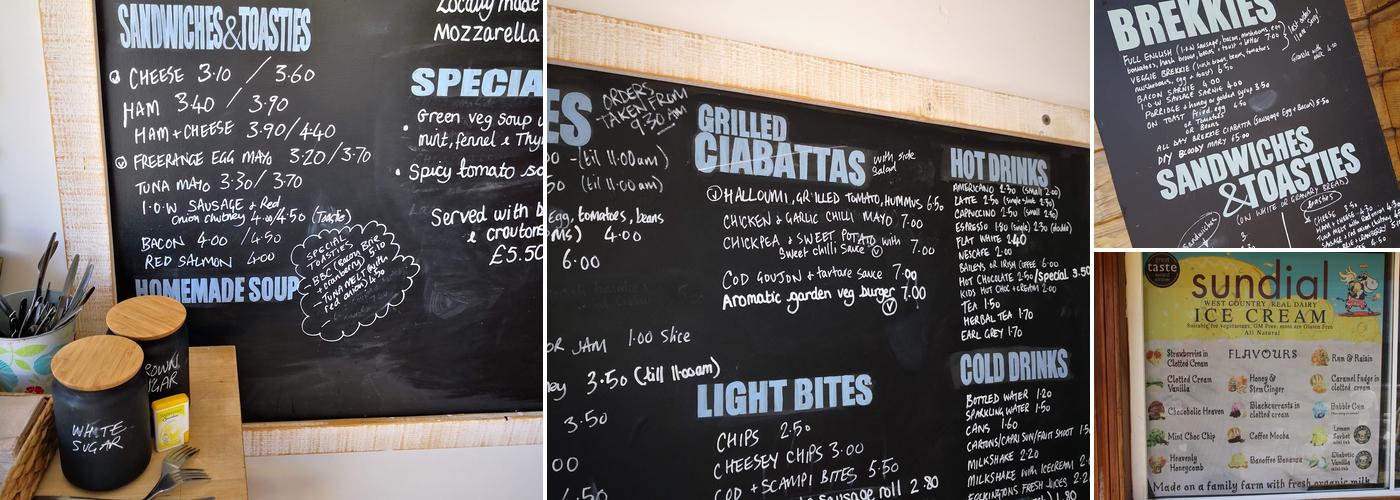 SANDWICHES & TOASTIES
CHEESE 3.10 / 3.60
HAM 3.40 / 3.90
HAM + CHEESE 3.90/4.40
FREERANGE EGG MAYO 3.20/3.70
TUNA MAYO 3.30/ 3.70
I.O.W SAUSAGE & Red
Onion chutney 4.00/4.50 (Toastie)
BACON 4.00 /4.50
RED SALMON 4.00
HOMEMADE SOUP
SPECIAL
TOASTIES
- BBC (Bacon, Brie
+ cranberry) 5.10
- TUNA MELT (with
red onion) 4.50
Locally made
Mozzarella
SPECIA
Green veg soup
mint, fennel & Thy
Spicy tomato so
Served with b
& croutons
£5.50
BROWN
SUGAR
WHITE
SUGAR
ES
ORDERS
TAKEN FROM
9.30 AM
00 - (til 11.00am)
50 (til 11.00am)
Egg, tomatoes, beans
ms) 4.00
6.00
OR JAM 1.00 Slice
ney 3.50 (till 11.00am)
3.50
00
1.50
GRILLED
CIABATTAS
with side
salad
HALLOUMI, GRILLED TOMATO, HUMMUS 6.50
CHICKEN & GARLIC CHILLI MAYO 7.00
CHICKPEA & SWEET POTATO with
Sweet chilli Sauce V 7.00
COD GOUJON & tartare sauce 7.00
Aromatic garden veg burger 7.00
V
LIGHT BITES
CHIPS 2.50
CHEESEY CHIPS 3.00
COD & SCAMPI BITES 5.50
sausage roll 2.80
HOT DRINKS
AMERICANO 2.30 (small 2.00)
LATTE 2.50
CAPPUCCINO 2.50 (small 2.30)
ESPRESSO 1.80 (single) 2.30 (double)
FLAT WHITE 2.40
NESCAFE 2.00
BAILEYS OR IRISH COFFEE 6.00
HOT CHOCOLATE 2.50/Special 3.50
KIDS HOT CHOC + CREAM 2.00
TEA 1.50
HERBAL TEA 1.70
EARL GREY 1.70
COLD DRINKS
BOTTLED WATER 1.20
SPARKLING WATER 1.50
CANS 1.60
CARTONS/CAPRI SUN/FRUIT SHOOT 1.5
MILKSHAKE 2.20
MILKSHAKE with ICECREAM 2
FOLKINGTONS FRESH JUICES 2
BREKKIES
FULL ENGLISH (I.O.W Sausage, bacon, mushrooms, egg
tomatoes, hash brown, beans + toast + butter 7.00
last orders
11am Song!
VEGGIE BREKKIE (hash brown, beans, tomatoes
mushrooms, egg + toast) 6.50
BACON SARNIE 4.00
I.O.W SAUSAGE SARNIE 4.00
Granola with
milk 4.00
PORRIDGE + honey or golden syrup 3.50
ON TOAST Fried egg 4.50
or Tomatoes
OR Beans
ALL DAY BREKKIE CIABATTA (Sausage Egg + Bacon) 5.50
DIY BLOODY MARY £5.00
SANDWICHES
& TOASTIES
(ON WHITE OR GRANARY BREAD)
Sandwiches
TOASTIES
great
taste
sundial
WEST COUNTRY REAL DAIRY
ICE CREAM
Suitable for vegetarians, GM Free, most are Gluten Free
All Natural
FLAVOURS
Strawberries in
Clotted Cream
Rum & Raisin
Clotted Cream
Vanilla
Honey &
Stem Ginger
Caramel Fudge in
clotted cream
Chocoholic Heaven
Blackcurrants in
clotted cream
Bubble Gum
Mint Choc Chip
Coffee Mocha
Lemon
Sorbet
mini tub
Heavenly
Honeycomb
Banoffee Bonanza
Diabetic
Vanilla
mini tub
Made on a family farm with fresh organic milk